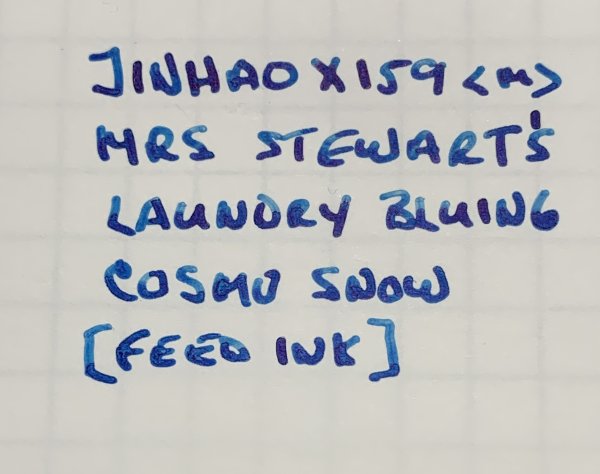 JINHAO X159 <M>
MRS STEWART'S
LAUNDRY BLUING
COSMO SNOW
[FEED INK]